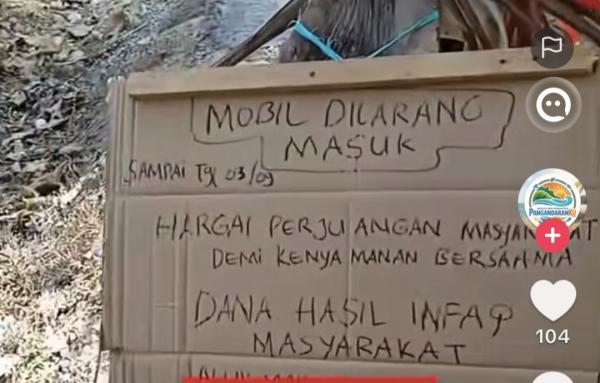 MOBIL DILARANG
MASUK
SAMPAI Tgl 03/09
HARGAI PERJUANGAN MASYARAKAT
DEMI KENYAMANAN BERSAHMA
DANA HASIL INFAQ
MASYARAKAT
PANGANDARAN
104